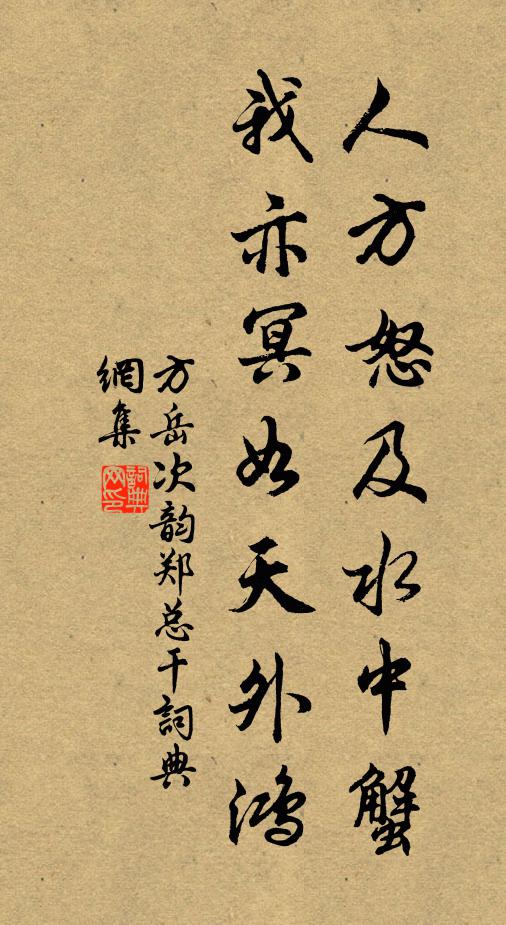 人方怒及水中蟹
我亦冥如天外鸿
方岳次韵郑总干詞典
網集
詞典
网印